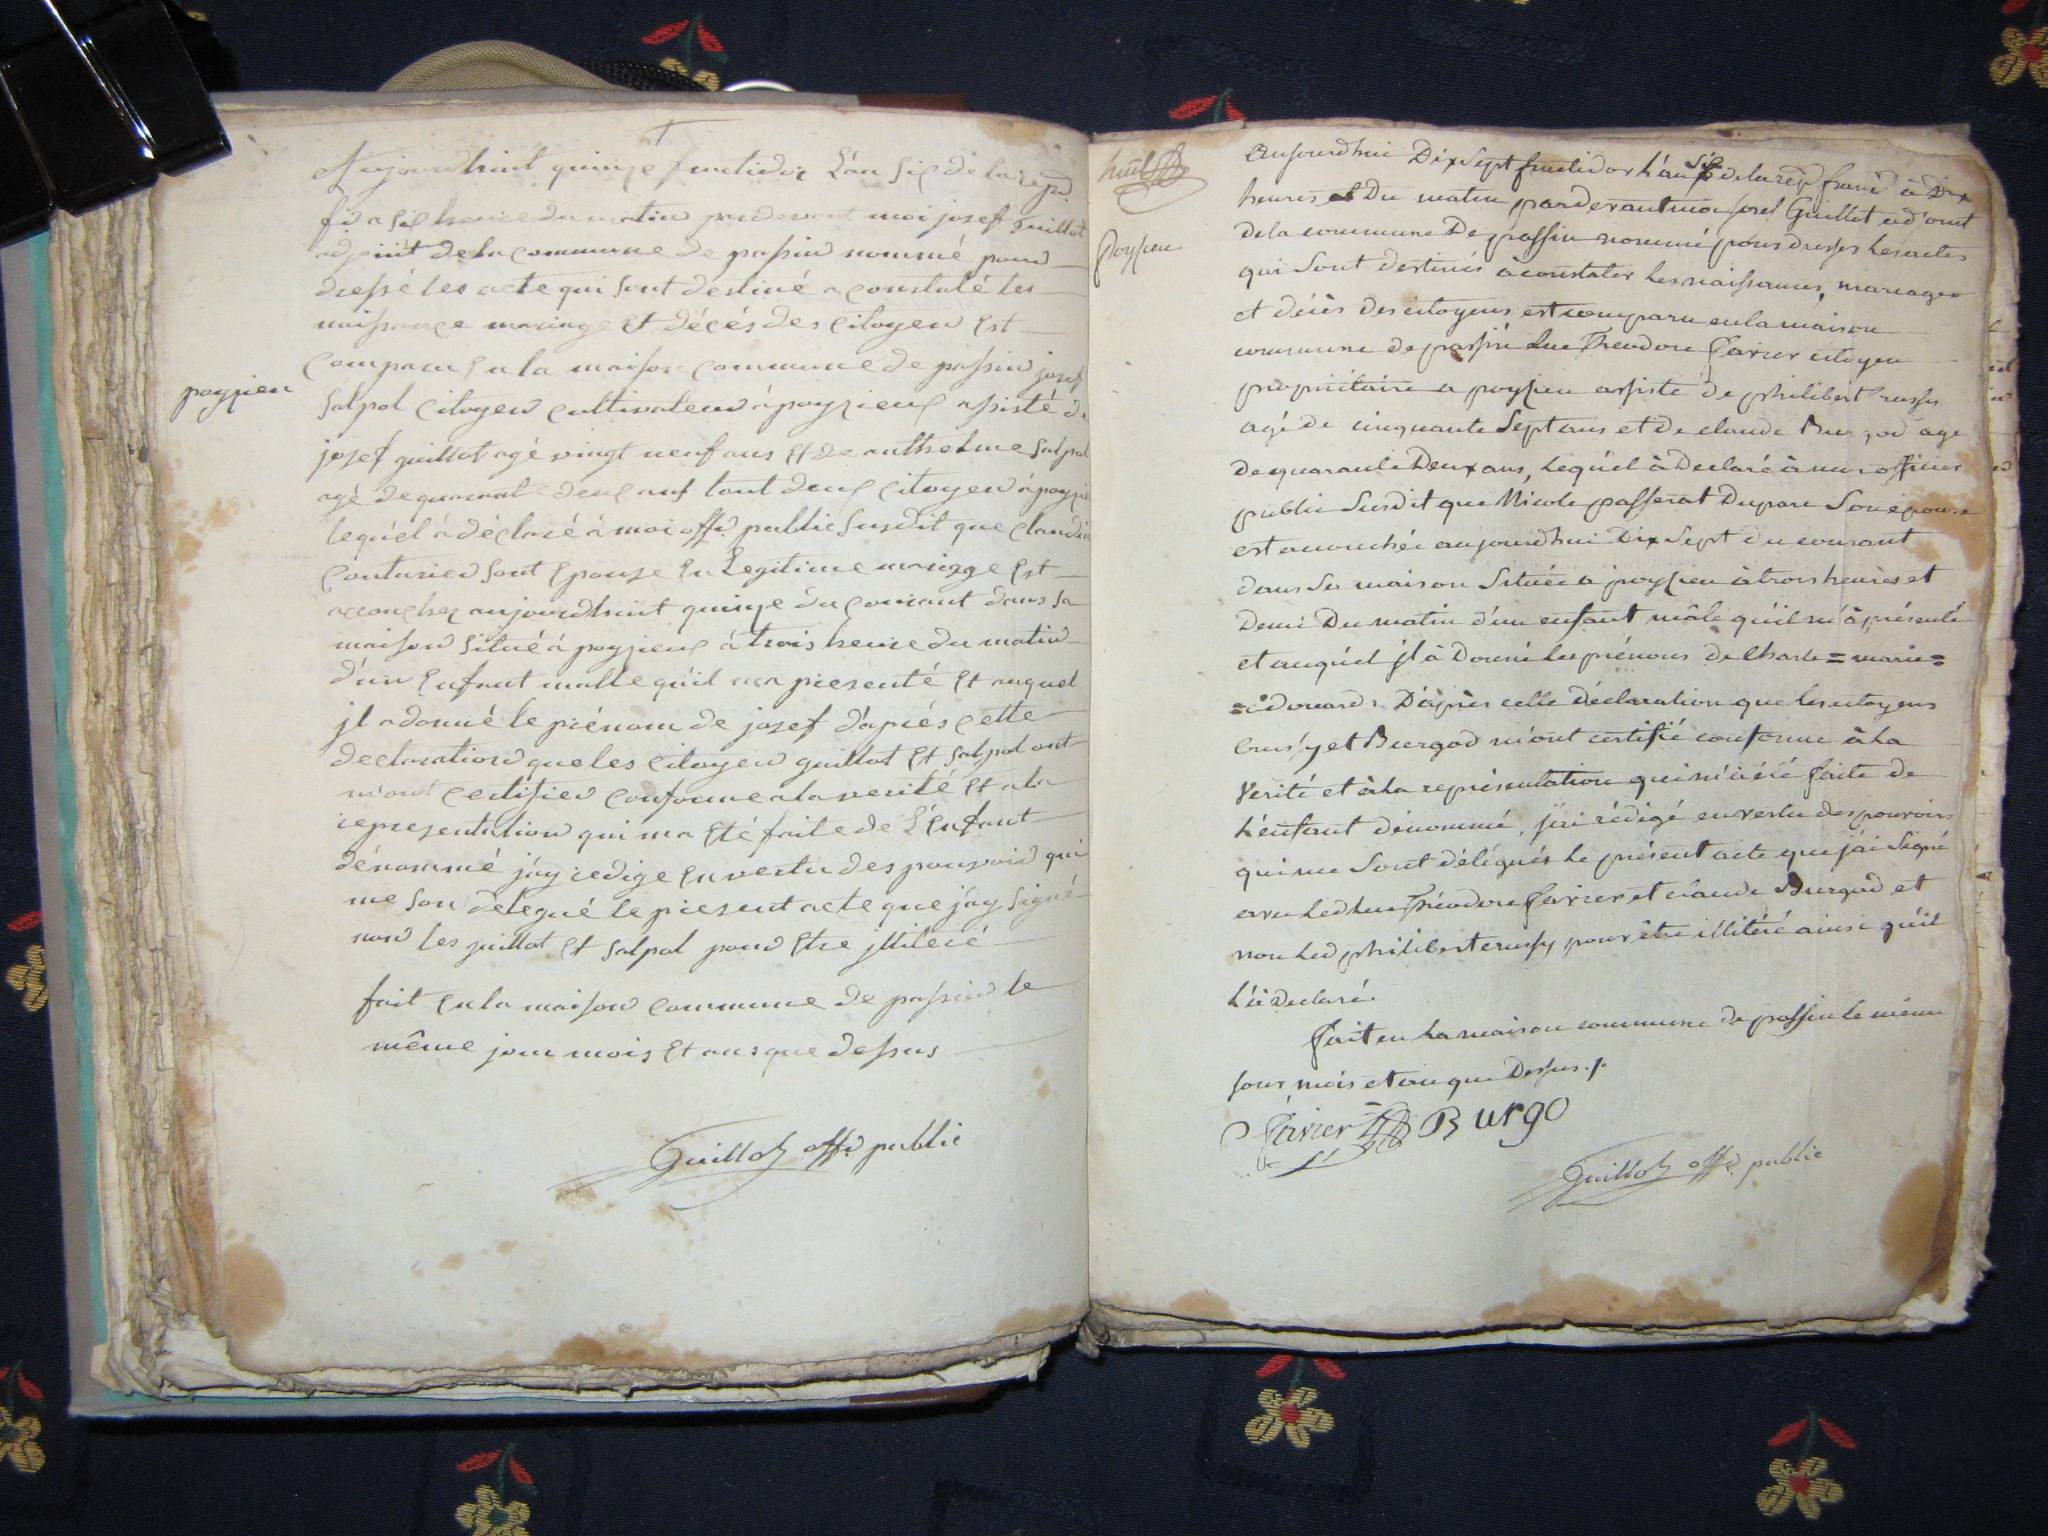 Aujourdhuit quinze fructidor L'an six de la rep.
à six heure du matin pardevant moi josef Guillot
adjoint de la commune de passin nommé pour
dressé les acte qui sont destiné a constaté les
naissance mariage Et décés des citoyen Est
comparu En la maison commune de passin josef
Salpol citoyen cultivateur à poyzieux assisté de
poyzieu
josef guillot agé vingt neuf ans Et de anthelme Salpol
agé de quarant deux ans tout deux citoyen à poyzieu
lequél à déclaré à moi off. public susdit que claudin
couturier sont Epouze En Legitime mariage Est
accouchez aujourdhuit quinze du courant dans sa
maison situé à poyzieux à trois heure du matin
d'un Enfant malle qu'il ma presenté Et auquel
jl a donné le prénom de josef d'aprés cette
declaration que les citoyen guillot Et salpol ont
m'ont certifier conforme a la verité Et a la
representation qui ma Eté faite de L'Enfant
dénommé j'ay redige En vertu des pouvoir qui
me son délegué le present acte que j'ay signé
non les guillot Et salpol pour Etre jllileré
fait En la maison commune de passin le
même jour mois Et ans que dessus
Guillot off. public
Aujourdhui Dix Sept fructidor L'an six de la rép. franc. à Dix
heures Du matin pardevant moi Josef Guillot adjoint
poyzieu
de la commune De passin nommé pour dresser les actes
qui Sont destinés à constater les naissances, mariages
et décès des citoyens est comparu en la maison
commune de passin Luc Theodore Favier citoyen
propriétaire a poyzieu assisté de philibert
agé de cinquante Sept ans et de claude Burgod agé
De quarante Deux ans, Lequel à Déclaré à moi officier
public Susdit que Nicole passerat Duparc Son épouse
est accouchée aujourdhui Dix Sept du courant
dans Sa maison Située a poyzieu à trois heures et
Demi Du matin d'un enfant mâle qu'il m'à présenté
et auquel jl à Donné les prénoms de Charle=marie=
=édouard. D'après cette Déclaration que les citoyens
et Burgod m'ont certifié conforme à La
Vérité et à La représentation qui m'à été faite de
L'enfant dénommé, j'ai rédigé en vertu des pouvoirs
qui me Sont délégués Le présent acte que j'ai Signé
avec Led Luc Théodore Favier et claude Burgod et
non Led philibert pour être illitéré ainsi qu'il
L'à Declaré.
Fait en La maison commune de passin le même
Jour, mois et an que Dessus./.
Favier Burgo
Guillot off. public